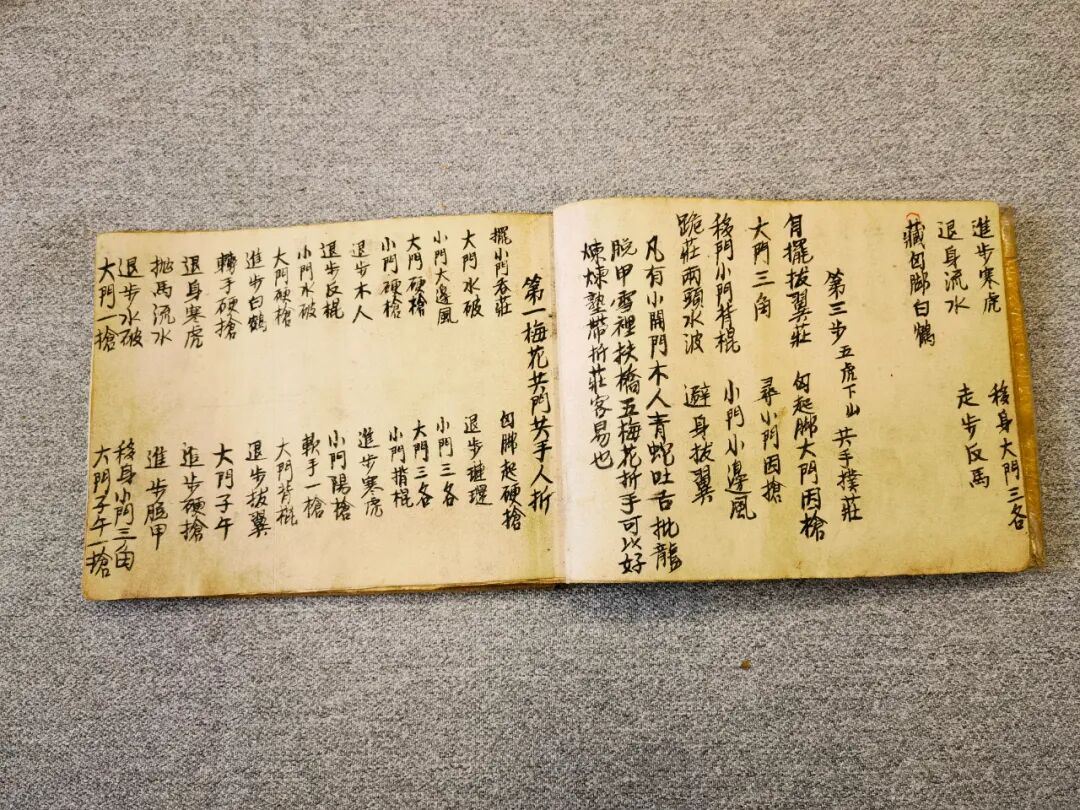 進步寒虎 移身大門三各
退身流水 走步反馬
藏匈腳白鶴
第三步五虎下山 共手撲莊
自擺拔翼莊 匈起腳大門因槍
大門三角 尋小門因搶
移門小門背棍 小門小邊風
跪莊兩頭水波 避身拔翼
凡有小開門木人青蛇吐舌批龍
脫甲雪裡扶橋五梅花折手可以好
煉煉塾帶折莊客易也
第一梅花共門共手人折
擺小門吞莊 匈腳起硬搶
大門水破 退步璉環
小門大邊風 小門三各
大門硬槍 大門三各
小門硬槍 小門揹棍
退步木人 進步寒虎
退步反棍 小門陽搶
小門水破 軟手一搶
大門硬搶 大門背棍
進步白鶴 退步拔翼
轉手硬搶 大門子午
退身寒虎 進步硬搶
拋馬流水 進步脫甲
退步水破 移身小門三角
大門一搶 大門子午一搶